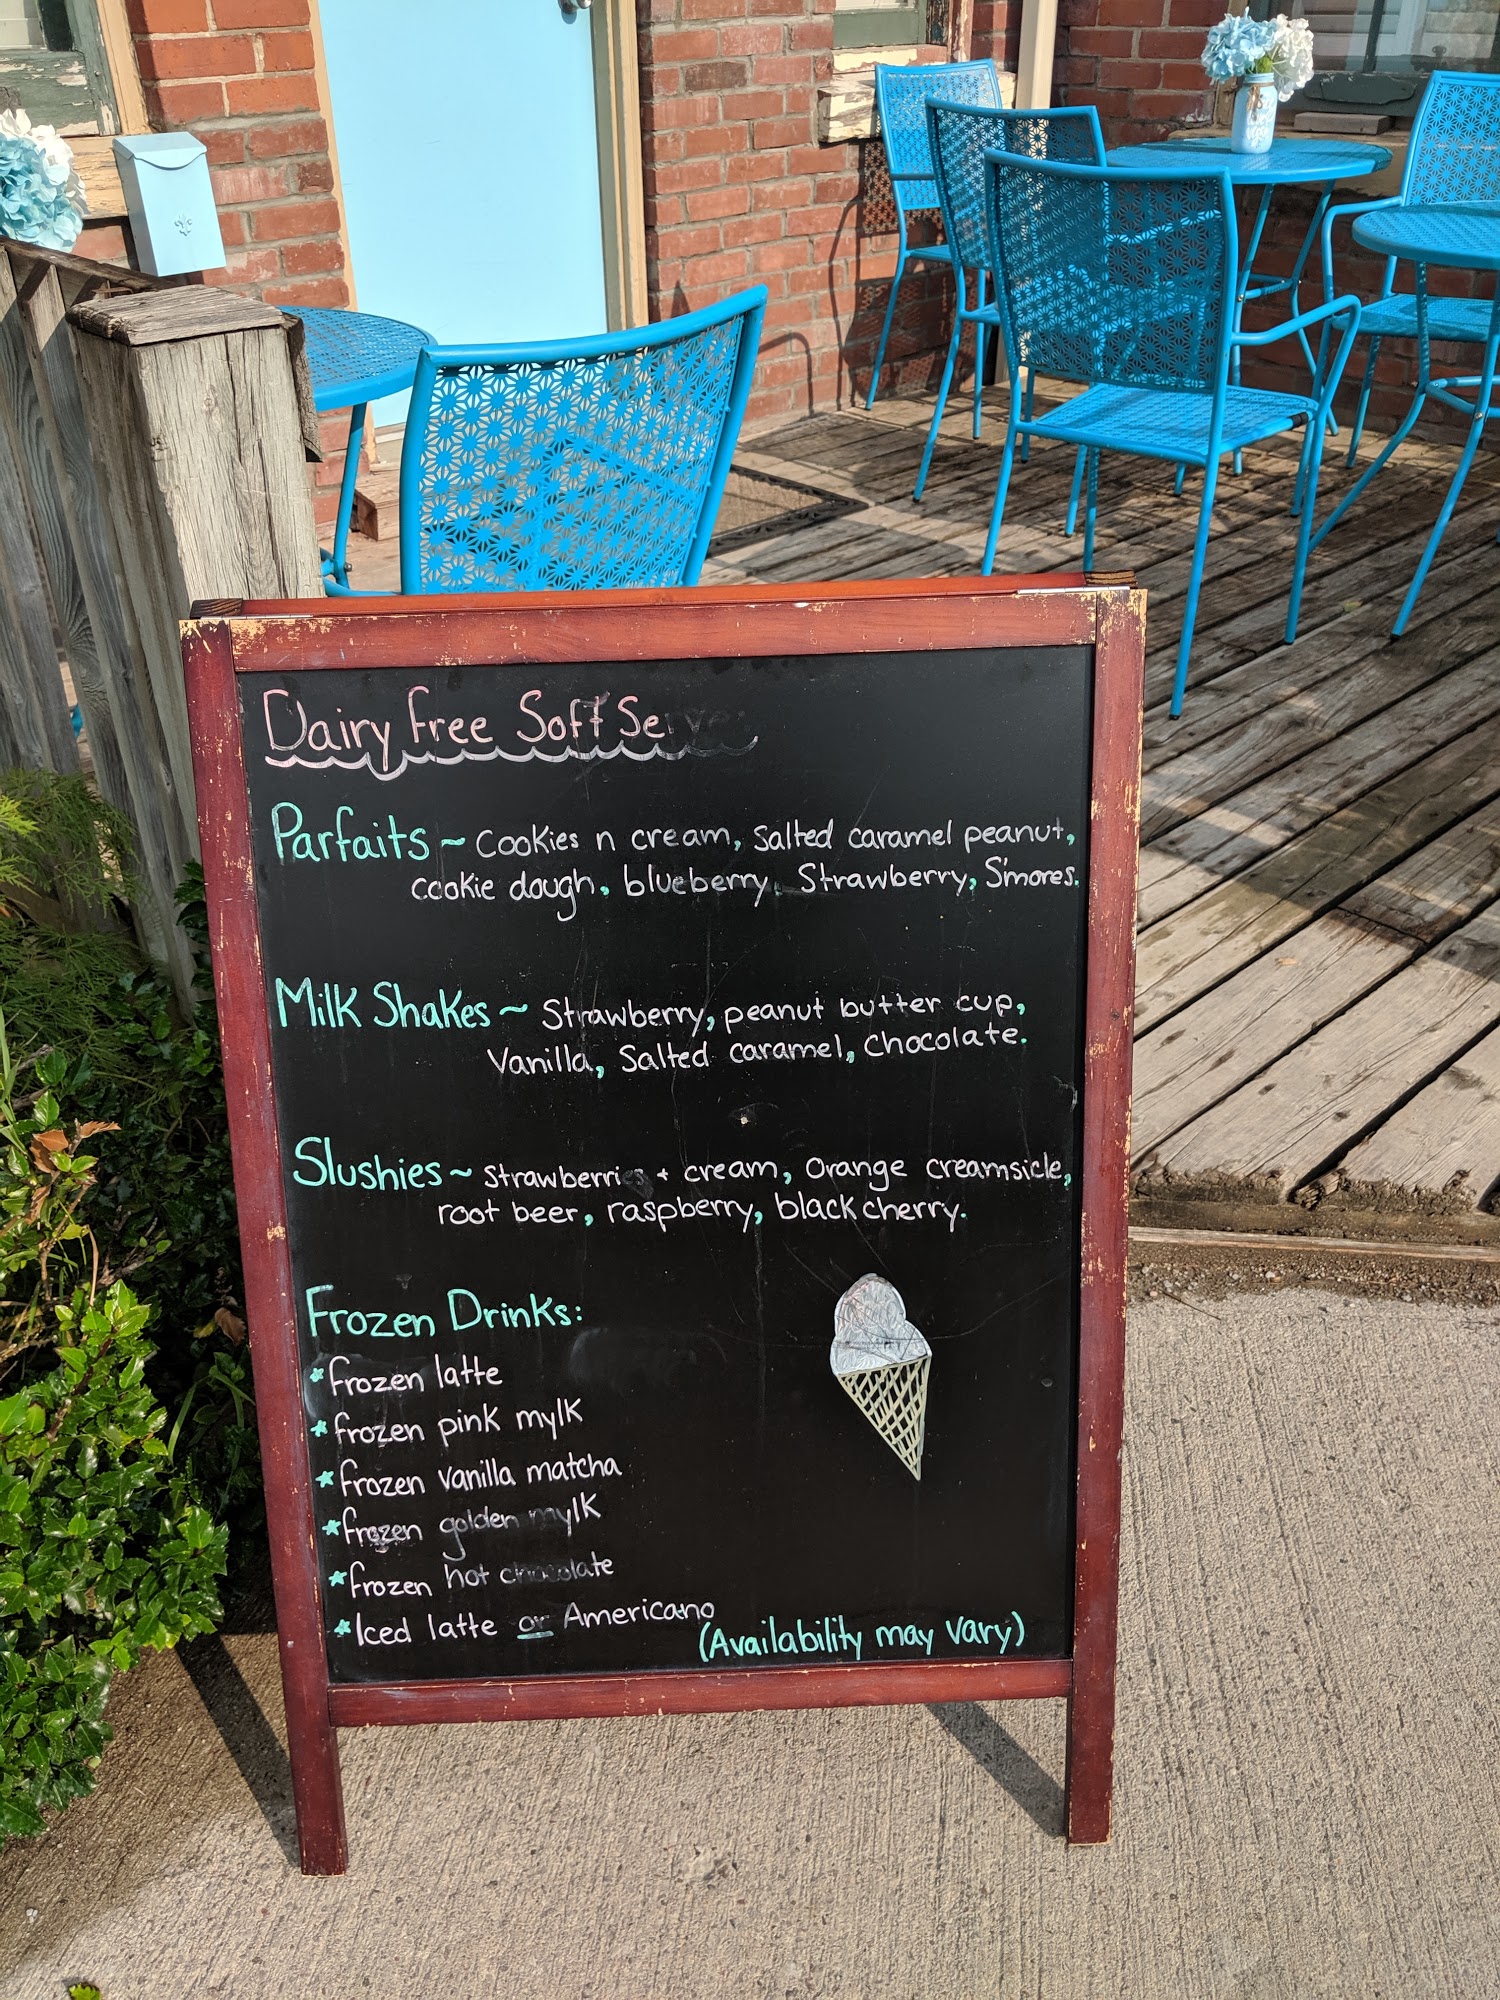 Dairy Free Soft Serve:
Parfaits ~ Cookies n cream, Salted caramel peanut,
cookie dough, blueberry, Strawberry, S'mores.
Milk Shakes ~ Strawberry, peanut butter cup,
Vanilla, Salted caramel, Chocolate.
Slushies ~ Strawberries + cream, Orange creamsicle,
root beer, raspberry, black cherry.
Frozen Drinks:
* frozen latte
* frozen pink mylk
* frozen vanilla matcha
* frozen golden mylk
* frozen hot chocolate
* Iced latte or Americano
(Availability may vary)